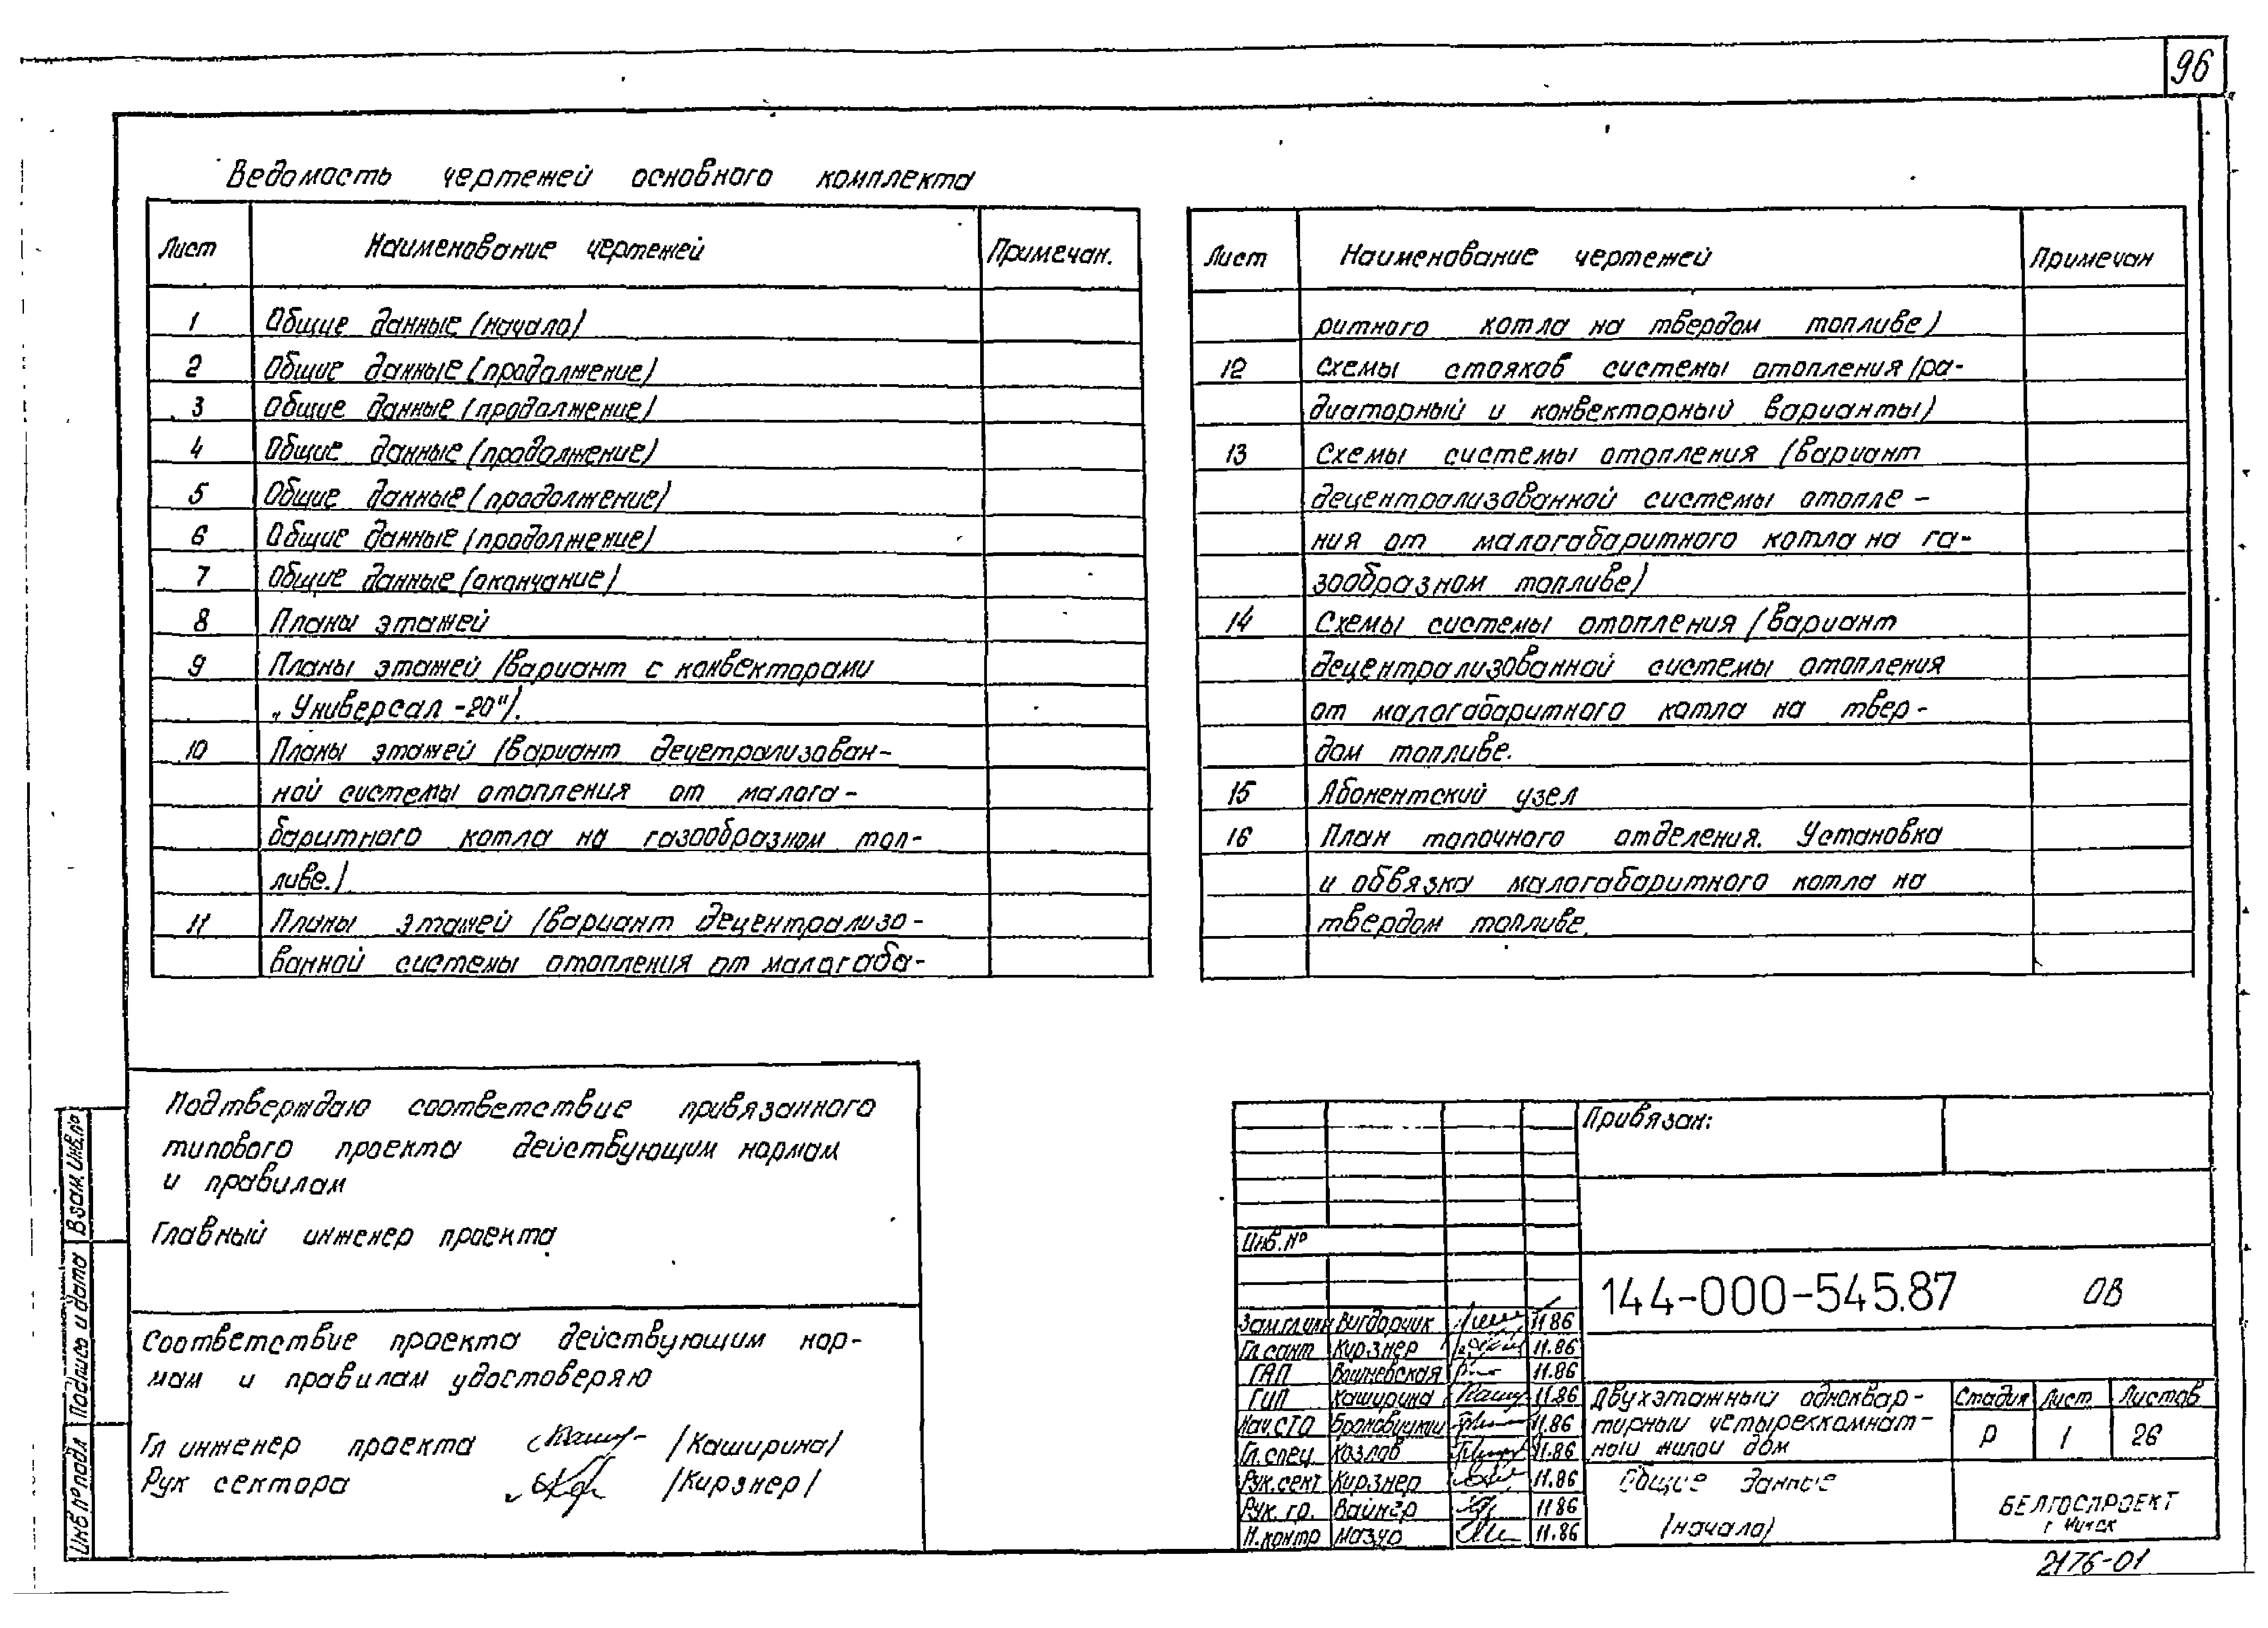 96
Ведомость чертежей основного комплекта
Лист Наименование чертежей Примечан.
1 Общие данные (начало)
2 Общие данные (продолжение)
3 Общие данные (продолжение)
4 Общие данные (продолжение)
5 Общие данные (продолжение)
6 Общие данные (продолжение)
7 Общие данные (окончание)
8 Планы этажей
9 Планы этажей (вариант с конвекторами
„Универсал-20").
10 Планы этажей (вариант децетрализован-
ной системы отопления от малога-
баритного котла на газообразном топ-
ливе.)
11 Планы этажей (вариант децентрализо-
ванной системы отопления от малогаба-
Лист Наименование чертежей Примечан
ритного котла на твердом топливе)
12 Схемы стояков системы отопления (ра-
диаторный и конвекторный варианты)
13 Схемы системы отопления (вариант
децентрализованной системы отопле-
ния от малогабаритного котла на га-
зообразном топливе)
14 Схемы системы отопления (вариант
децентрализованной системы отопления
от малогабаритного котла на твер-
дом топливе.
15 Абонентский узел
16 План топочного отделения. Установка
и обвязка малогабаритного котла на
твердом топливе.
Подтверждаю соответствие привязанного
типового проекта действующим нормам
и правилам
Главный инженер проекта
Соответствие проекта действующим нор-
мам и правилам удостоверяю
Гл инженер проекта /Каширина/
Рук сектора /Кирзнер/
Взам. инв.№
Подпись и дата
Инв № подл
Привязан:
Инв. №
144-000-545.87 ОВ
Зам.гл.инж Вигдорчик 11 86
Гл.сант Кирзнер 11.86
ГАП Вишневская 11.86
ГИП Каширина 11.86
Нач.СТО 11.86
Гл.спец Козлов 11.86
Рук.сект Кирзнер 11.86
Рук. гр. Вайнер 11 86
Н.контр Мазур 11.86
Двухэтажный одноквар-
тирный четырехкомнат-
ный жилой дом
Стадия Лист Листов
Р 1 26
Общие данные
(начало)
БЕЛГОСПРОЕКТ
г Минск
2176-01